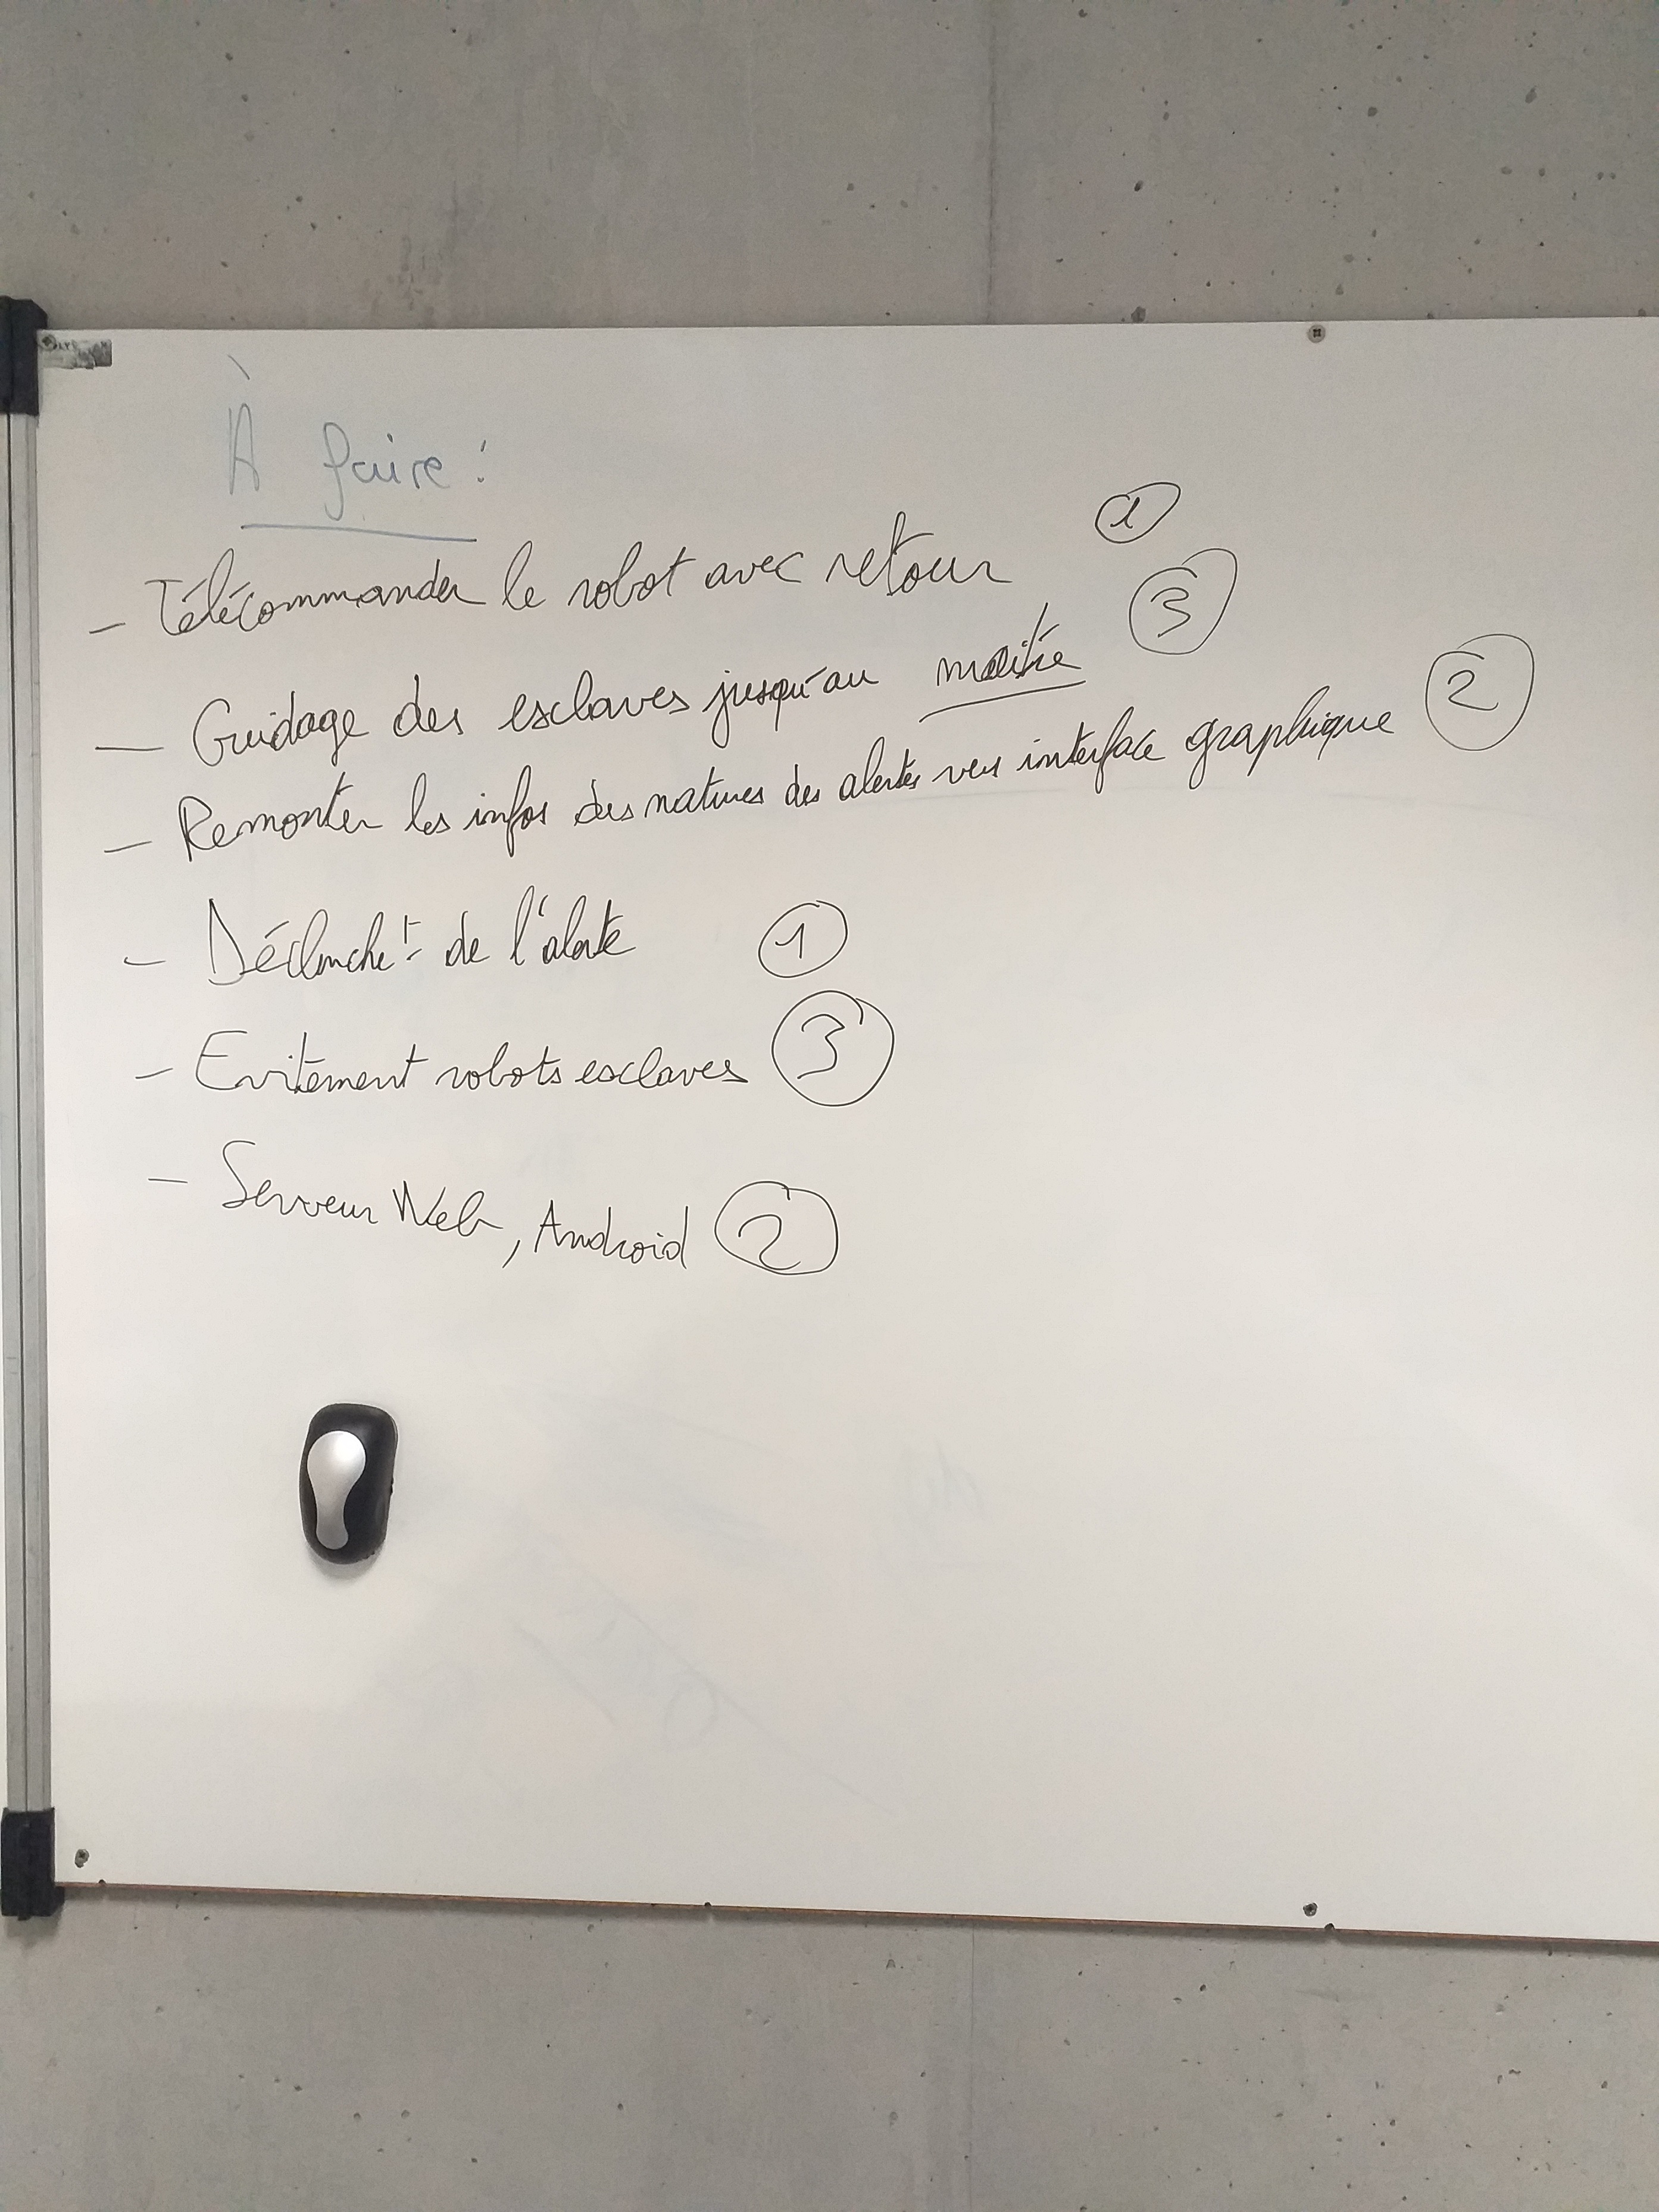 À faire :
- Télécommander le robot avec retour 1
- Guidage des esclaves jusqu'au maître 3
- Remonter les infos des natures des alertes vers interface graphique 2
- Déclenchet de l'alerte 1
- Evitement robots esclaves 3
- Serveur Web, Android 2